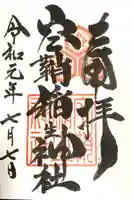 奉拝
空鞘稲生神社
令和元年
七月七日